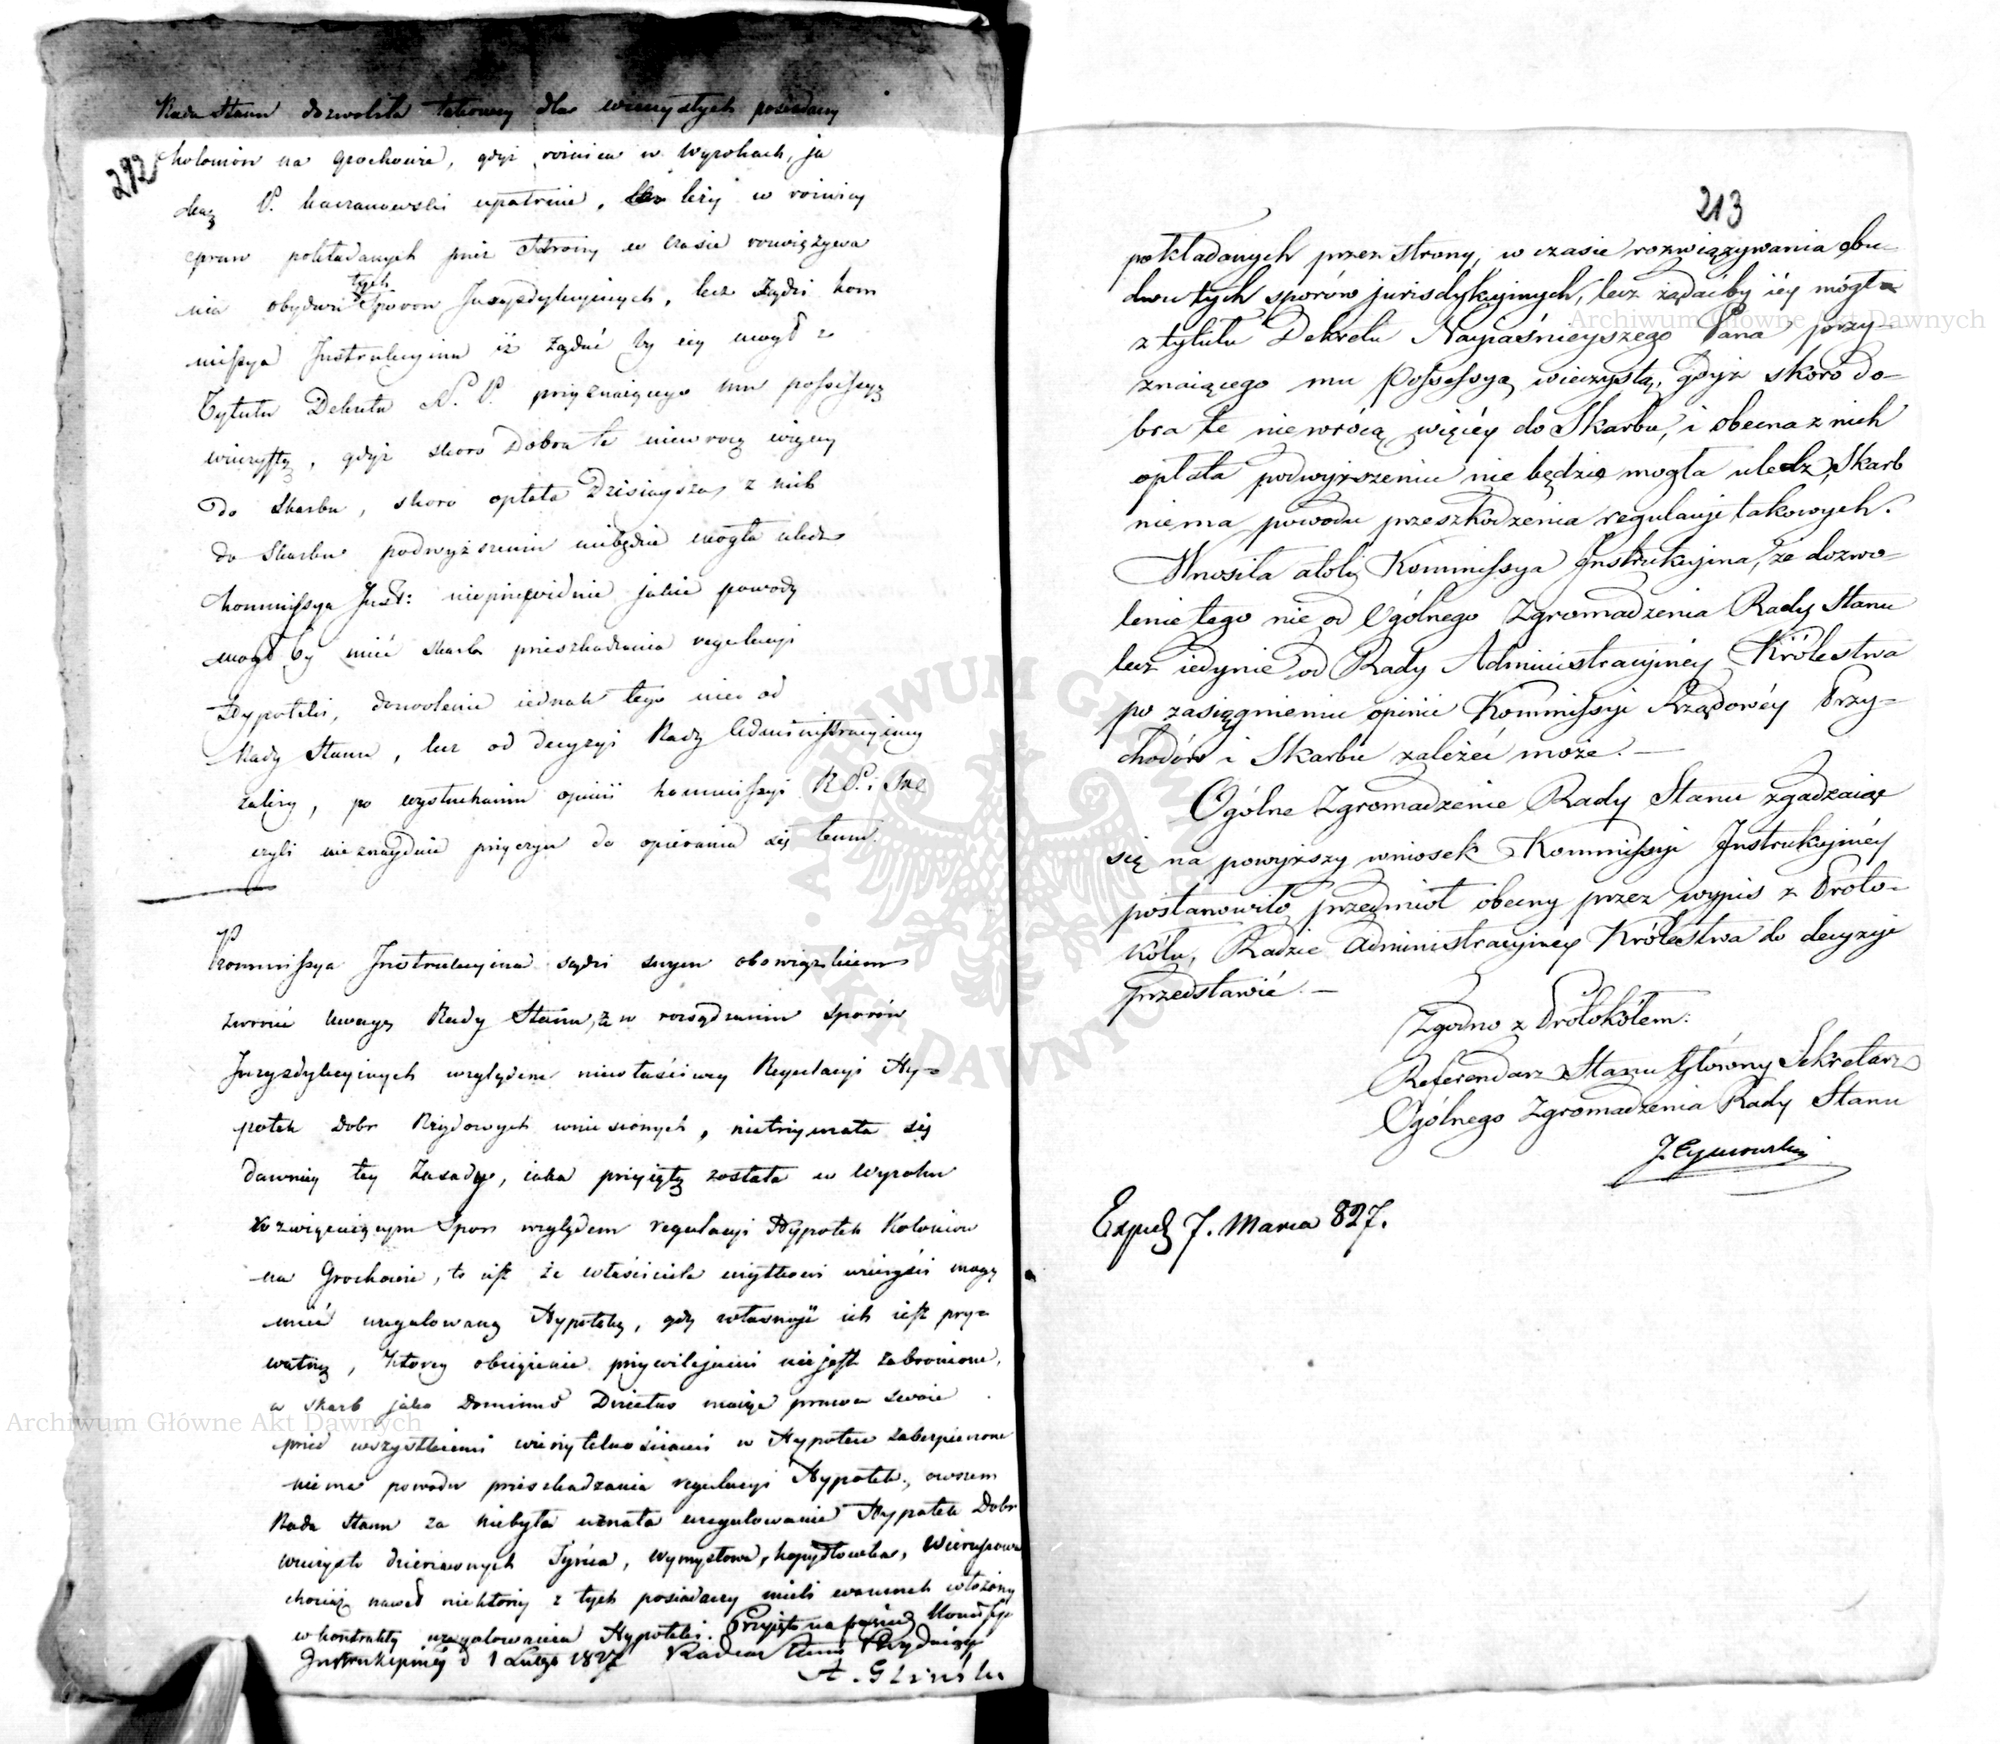 292
Rada Stanu dozwoliła takowey dla wieczystych posiadaczy
koloniów na Grochowie, gdyż roznica w Wyrokach, ja
ką P. Kaczanowski upatruie, leży w roznicy
spraw pokładanych przez Strony w czasie rozwiązywa
nia obydwu tych Sporow Jurysdykcyinych, lecz Sądzi kom
missya Instrukcyina iż żądać by iey mogł z
Tytułu Dekretu N. P. przyznaiącego mu possessyą
wieczystą, gdyż skoro Dobra te niewrocą więcey
do Skarbu, skoro opłata Dzisieysza z nich
do Skarbu podwyższeniu niebędzie mogła uledz
kommissya Inst: nieprzewidnie jakie powody
mogł by mieć skarb przeszkadzania regulacyi
Hypoteki, dozwolenie iednak tego nie od
Rady Stanu, lecz od decyzyi Rady Administracyiney
zależy, po wysłuchaniu opinii kommissyi R. P. i Sk
czyli nieznaydnie przyczyn do opierania się temu.
Kommissya Instrukcyina sądzi swym obowiązkiem
zwrocić uwagę Rady Stanu, że w rozsądzaniu Sporów
Jurysdykcyinych względem niewłaściwey Regulacyi Hy=
potek Dobr Rządowych wniesionych, nietrzymała się
dawniey tey Zasady, iaka przyiętą została w Wyroku
rozwięzuiącym Spor względem regulacyi Hypotek Koloniów
na Grochowie, to iest że właściciele użytkowi wieczyści mogą
mieć uregulowaną Hypotekę, gdy własność ich iest pry=
watną, ktorey obciążenie przywilejami nie jest zabronione,
a skarb jako Dominus Directus maiąc prawa swoie
przed wszystkiemi wierzytelnościami w Hypotece zabezpieczone
niema powodu przeszkadzania regulacyi Hypotek, owszem
Rada Stanu za niebyłą uznała uregulowanie Hypotek Dobr
wieczysto dzierżawnych Tyńca, Wymysłowa, Kopydłowka,
chociaż nawet niektórzy z tych posiadaczy mieli warunek włożony
w kontrakty uregulowania Hypoteki. Przyjęto na Kommissyi
Instrukcyinéy d 1 Lutego 1827 Radca Stanu
A. Gliński
213
pokładanych przez strony, w czasie rozwiązywania obu=
dwu tych sporów jurisdykcyjnych, lecz żądaćby iéy mógł
z tytułu Dekretu Nayjaśnieyszego Pana przy=
znaiącego mu Possessyą wieczystą, gdyż skoro do=
bra te niewrócą więcéy do Skarbu, i obecna z nich
opłata podwyższeniu nie będzie mogła uledz, Skarb
niema powodu przeszkodzenia regulacji takowych.
Wnosiła atoli Kommissya Instrukcyjna, że dozwo=
lenie tego nie od Ogólnego Zgromadzenia Rady Stanu
lecz iedynie od Rady Administracyjnéy Królestwa
po zasiągnieniu opinii Kommissyi Rządowéy Przy=
chodów i Skarbu zależeć może. —
Ogólne Zgromadzenie Rady Stanu zgadzaiąc
się na powyższy wniosek Kommissyi Instrukcyjnéy
postanowiło przedmiot obecny przez wypis z Proto=
kółu, Radzie Administracyjney Królestwa do decyzyi
przedstawić. —
Zgodno z Protokółem:
Referendarz Stanu Główny Sekretarz
Ogólnego Zgromadzenia Rady Stanu
Exped 7. Marca 827.
Archiwum Główne Akt Dawnych
Archiwum Główne Akt Dawnych
ARCHIWUM GŁÓWNE AKT DAWNYCH